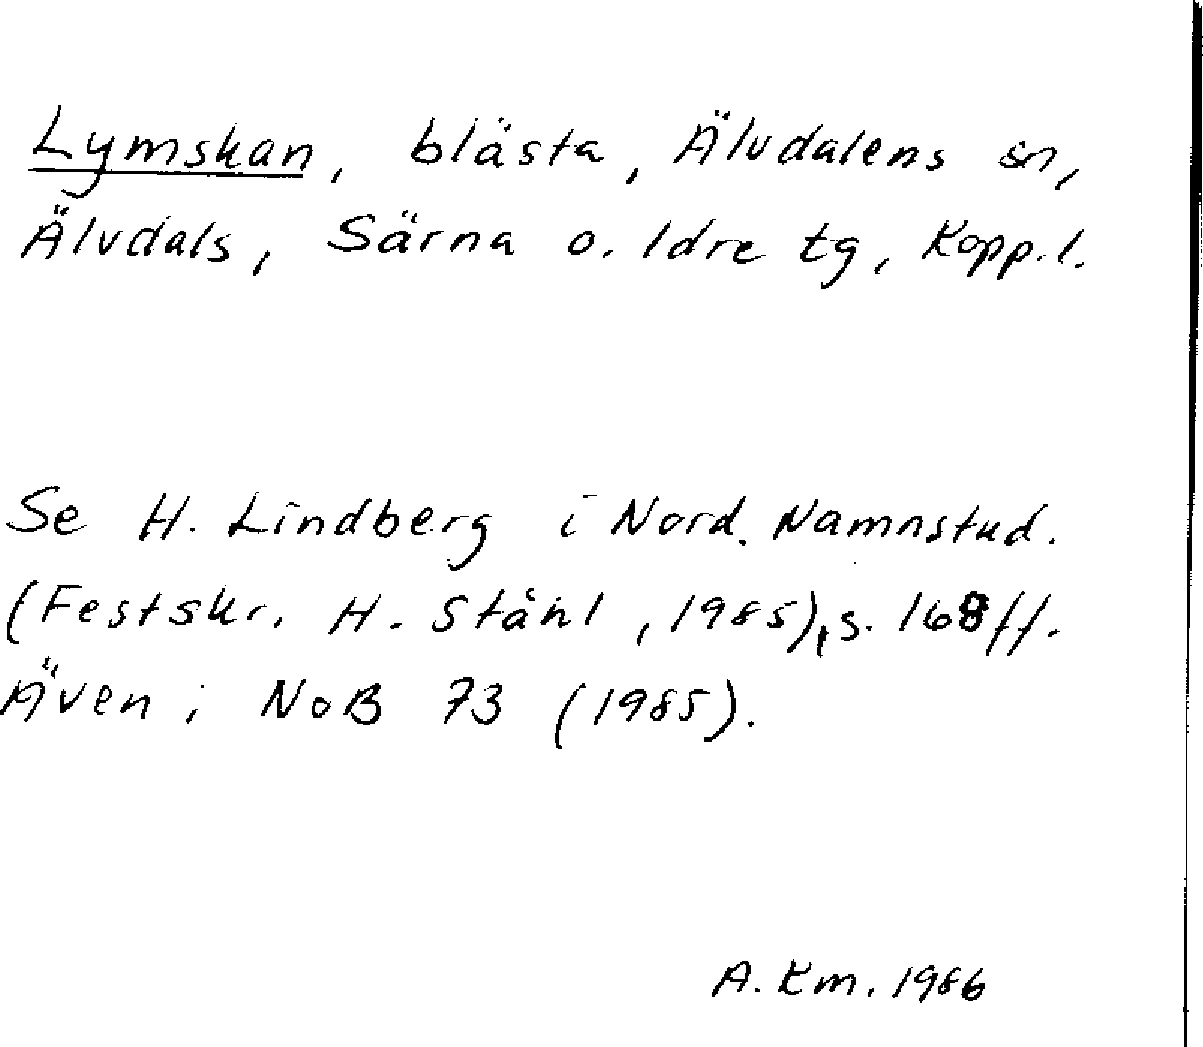 Lymskan, blästa, Älvdalens sn,
Älvdals, Särna o. Idre tg, Kopp.l.
Se H. Lindberg i Nord. Namnstud.
(Festskr. H. Ståhl, 1985), s. 168 ff.
Även i NoB 73 (1985).
A. Km. 1986